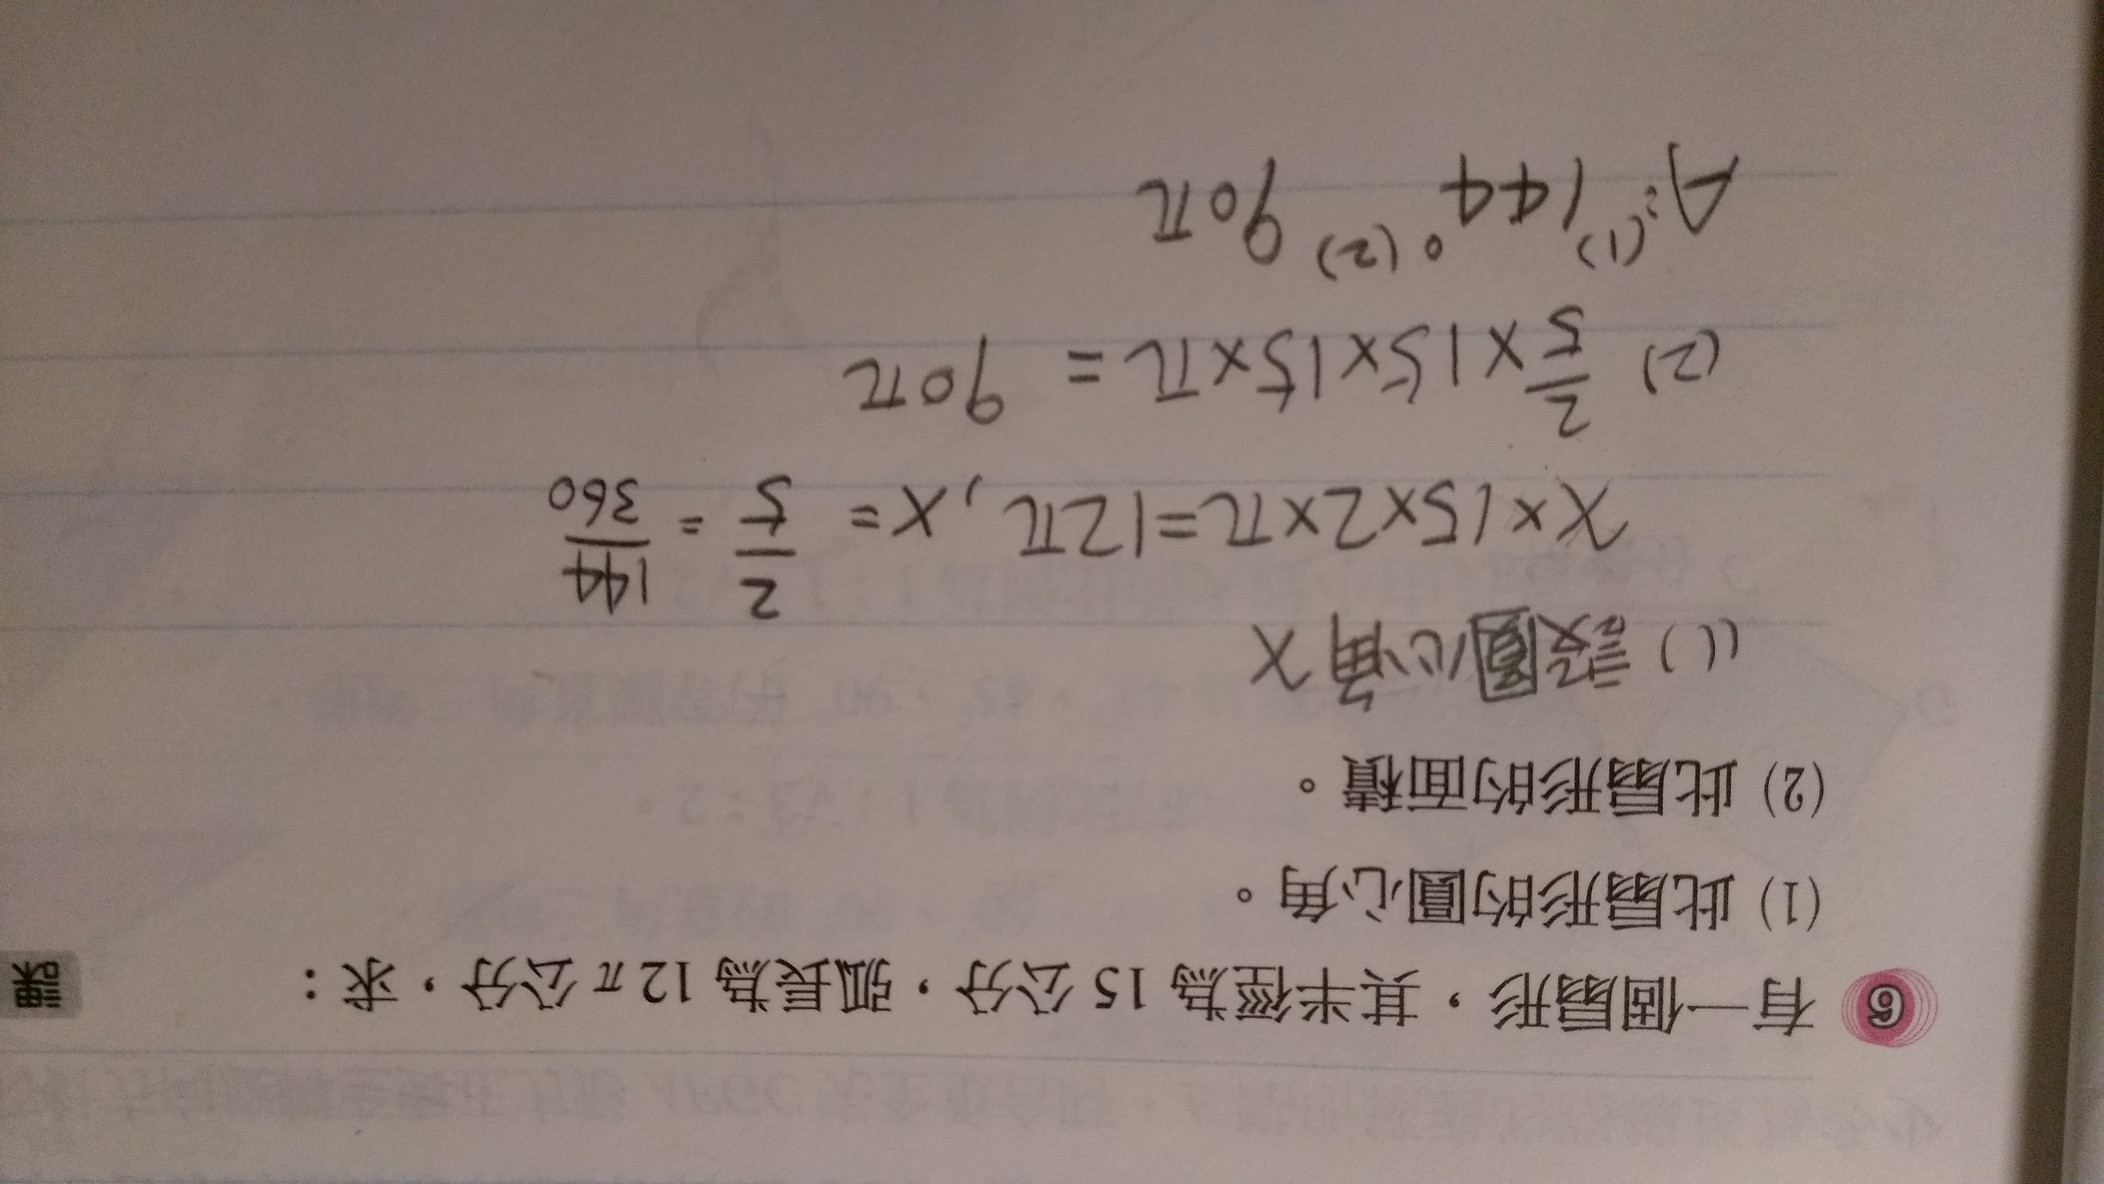 6 有一個扇形，其半徑為 15 公分，弧長為 12π 公分，求：
課
(1) 此扇形的圓心角。
(2) 此扇形的面積。
(1) 設圓心角 x
x×15×2×π=12π, x= 2/5 = 144/360
(2) 2/5×15×15×π = 90π
A:(1) 144° (2) 90π